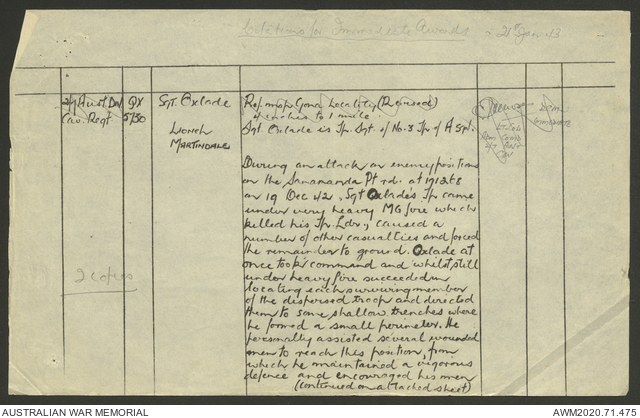 Citations for Immediate Awards - 21st Jan 43
2/7 Aust Div QX Sgt. Oxlade Ref. maps Gona Locality (Revised)
Cav. Regt 5130 4 inches to 1 mile.
Lionel Sgt. Oxlade is Tp. Sgt. of No. 8 Tp. of A Sqn.
Martindale
During an attack on enemy positions
on the Sanananda Pt rd. at 191268
on 19 Dec 42, Sgt Oxlade's Tp came
under very heavy MG fire which
killed his Tp. Ldr., caused a
number of other casualties and forced
the remainder to ground. Oxlade at
once took command and whilst still
under heavy fire succeeded in
locating each surviving member
of the dispersed troop and directed
them to some shallow trenches where
he formed a small perimeter. He
personally assisted several wounded
men to reach this position, from
which he maintained a vigorous
defence and encouraged his men
(continued on attached sheet)
2 copies
Lt. Col
DCM
AUSTRALIAN WAR MEMORIAL
AWM2020.71.475